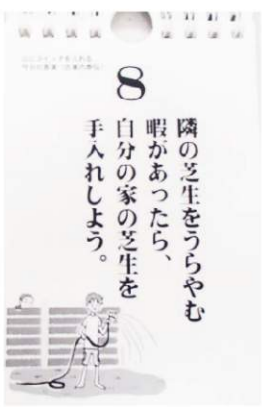 8
隣の芝生をうらやむ
暇があったら、
自分の家の芝生を
手入れしよう。